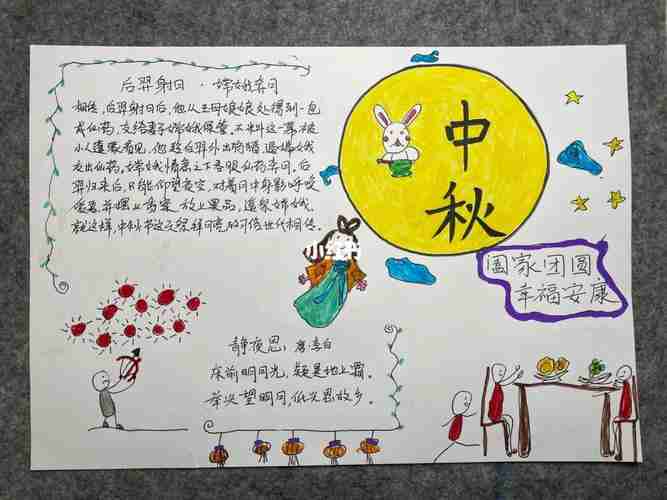 后羿射日·嫦娥奔月
相传，后羿射日后，他从王母娘娘处得到一包
成仙药，交给妻子嫦娥保管，不料这一幕被
小人蓬蒙看见，他趁后羿外出狩猎，逼嫦娥
交出仙药。嫦娥情急之下吞服仙药奔月。后
羿归来后，只能仰望夜空，对着月中身影呼唤
爱妻，并摆上香案，放上果品，遥祭嫦娥
就这样，中秋节这天祭拜月亮的习俗世代相传。
中
秋
阖家团圆
幸福安康
静夜思，唐·李白
床前明月光，疑是地上霜。
举头望明月，低头思故乡。